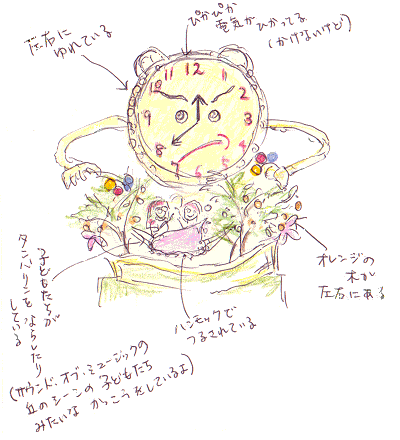 ぴかぴか
電気がひかってる
(かけないけど)
左右に
ゆれている
12
1
2
3
4
5
6
7
8
9
10
11
子どもたちが
タンバリンをならしたり
している
(サウンド・オブ・ミュージックの
丘のシーンの子どもたち
みたいな かっこうをしているよ)
ハンモックで
つるされている
オレンジの
木が
左右にある